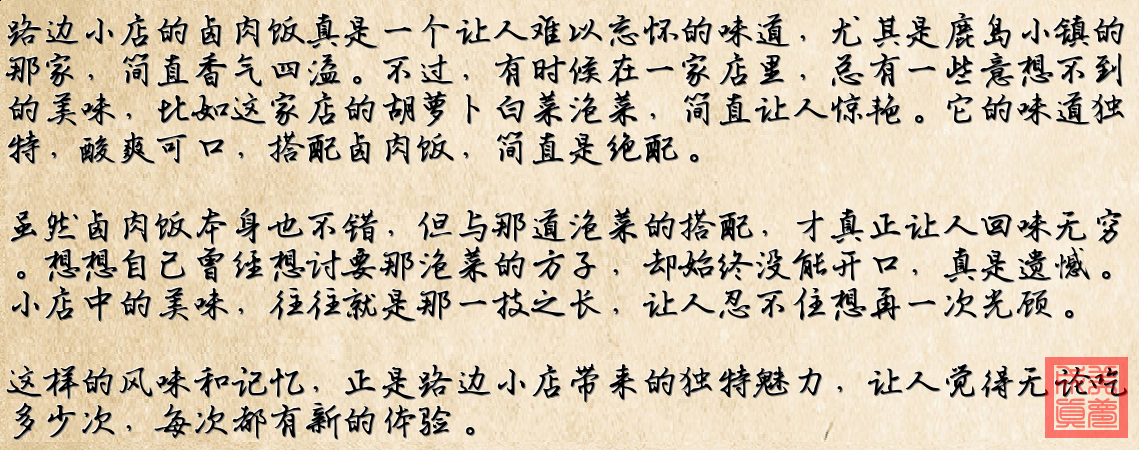 路边小店的卤肉饭真是一个让人难以忘怀的味道，尤其是鹿岛小镇的
那家，简直香气四溢。不过，有时候在一家店里，总有一些意想不到
的美味，比如这家店的胡萝卜白菜泡菜，简直让人惊艳。它的味道独
特，酸爽可口，搭配卤肉饭，简直是绝配。
虽然卤肉饭本身也不错，但与那道泡菜的搭配，才真正让人回味无穷
。想想自己曾经想讨要那泡菜的方子，却始终没能开口，真是遗憾。
小店中的美味，往往就是那一技之长，让人忍不住想再一次光顾。
这样的风味和记忆，正是路边小店带来的独特魅力，让人觉得无论吃
多少次，每次都有新的体验。